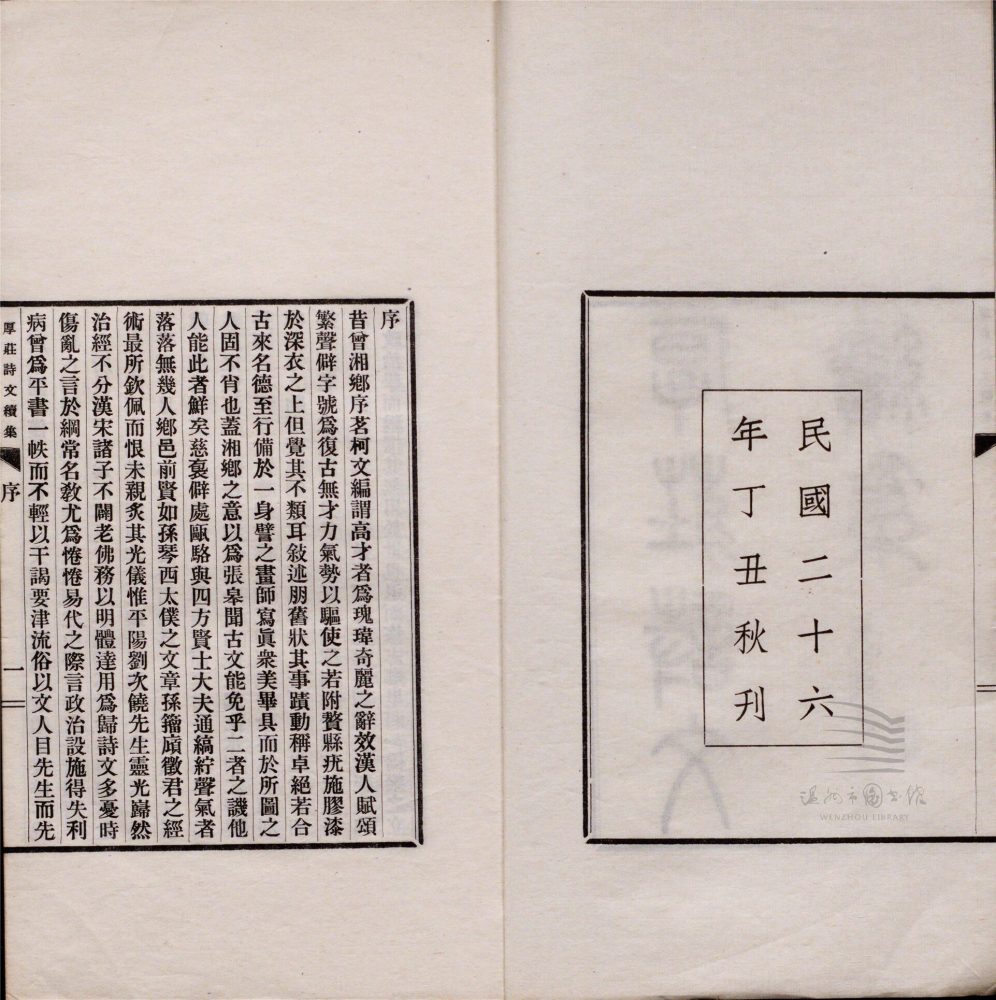 民國二十六
年丁丑秋刋
温州市圖書館
WENZHOU LIBRARY
序
昔曾湘鄉序茗柯文編謂高才者爲瑰瑋奇麗之辭效漢人賦頌
繁聲僻字號爲復古無才力氣勢以驅使之若附贅縣疣施膠漆
於深衣之上但覺其不類耳敍述朋舊狀其事蹟動稱卓絕若合
古來名德至行備於一身譬之畫師寫眞衆美畢具而於所圖之
人固不肖也蓋湘鄉之意以爲張皋聞古文能免乎二者之譏他
人能此者鮮矣慈褱僻處甌駱與四方賢士大夫通縞紵聲氣者
落落無幾人鄉邑前賢如孫琴西太僕之文章孫籀廎徵君之經
術最所欽佩而恨未親炙其光儀惟平陽劉次饒先生靈光巋然
治經不分漢宋諸子不闢老佛務以明體達用爲歸詩文多憂時
傷亂之言於綱常名敎尤爲惓惓易代之際言政治設施得失利
病曾爲平書一帙而不輕以干謁要津流俗以文人目先生而先
厚莊詩文續集
序
一